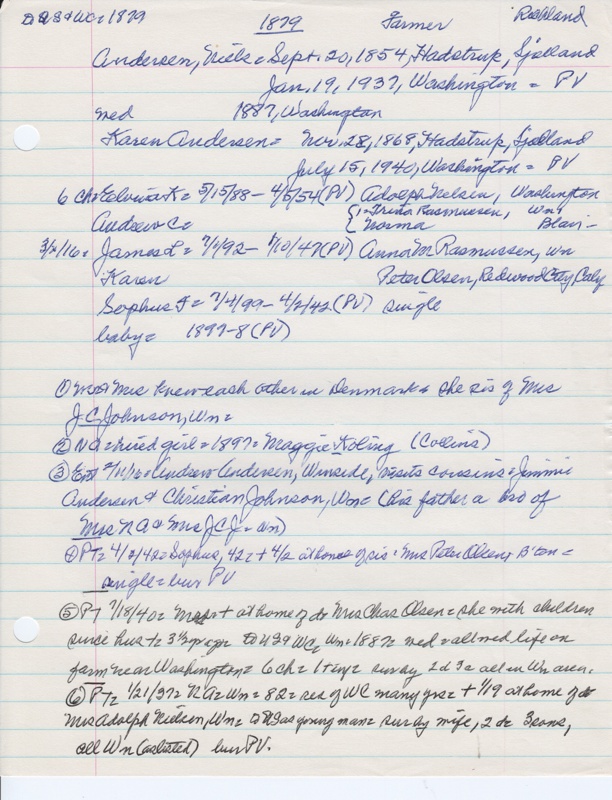 1879 Farmer Richland
Andersen, Niels = Sept. 20, 1854, Hadstrup, Sjolland
Jan. 19, 1937, Washington = PV
med 1887, Washington
Karen Andersen = Nov. 28, 1868, Hadstrup, Sjolland
July 15, 1940, Washington = PV
6 ch = Elvina K = 5/15/88 - 4/5/54 (PV) Adolph Nielsen, Washington
Andrew C = { 1 = Trina Rasmussen, Wn
Norma Blair -
3/2/16 = James L = 7/1/92 - 1/10/47 (PV) Anna M Rasmussen, Wn
Karen Peter Olsen, Redwood City, Calif
Sophus F = 7/4/99 - 4/2/42 (PV) single
baby = 1897-8 (PV)
① Mr & Mrs knew each other in Denmark & she sis of Mrs
J.C. Johnson, Wn =
② NA = hired girl = 1897 = Maggie Koling (Collins)
③ Ent 2/11/16 = Andrew Andersen, Winside, visits cousins = Jimmie
Andersen & Christian Johnson, Wn = (his father a bro of
Mrs NA & Mrs J C J = Wn)
④ PT = 4/2/42 = Sophus, 42 = + 4/2 at home of sis = Mrs Peter Olsen, B'ton =
single = bur PV
⑤ PT 7/18/40 = + at home of da Mrs Chas Olsen = she with children
since hus + = 3½ yr ago WC, Wn = 1887 = med = all med life on
farm near Washington = 6 ch = surv by 2 d 3 s all in Wn area.
⑥ PT = 1/21/37 = NA = Wn = 82 = res of WC many yrs = + 1/19 at home of da
Mrs Adolph Nielsen, Wn = as young man = surv by wife, 2 da 3 sons,
all Wn (as listed) bur PV.